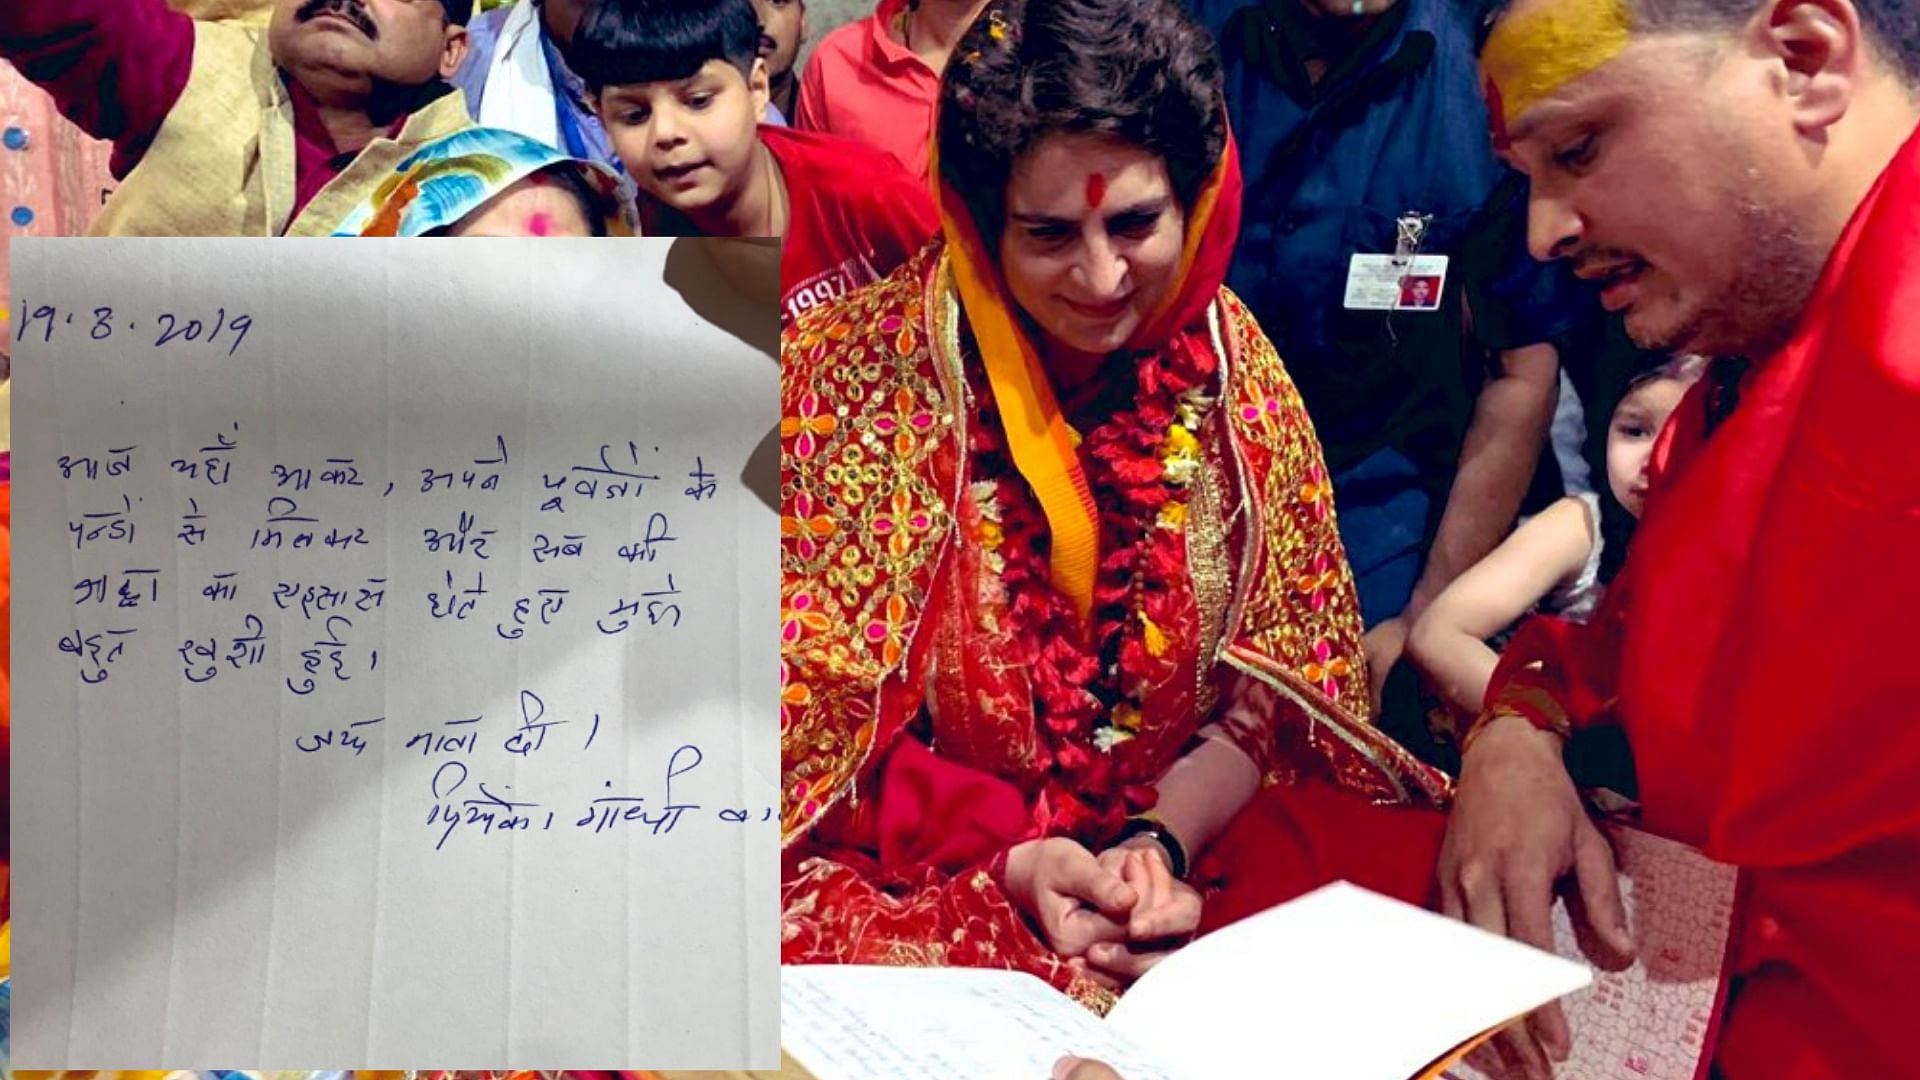 19.3.2019
आज यहाँ आकर, अपने पूर्वजों के
पन्डों से मिलकर और सब की
श्रद्धा का एहसास होते हुए मुझे
बहुत खुशी हुई।
जय माता दी।
प्रियंका गांधी वा
-1997